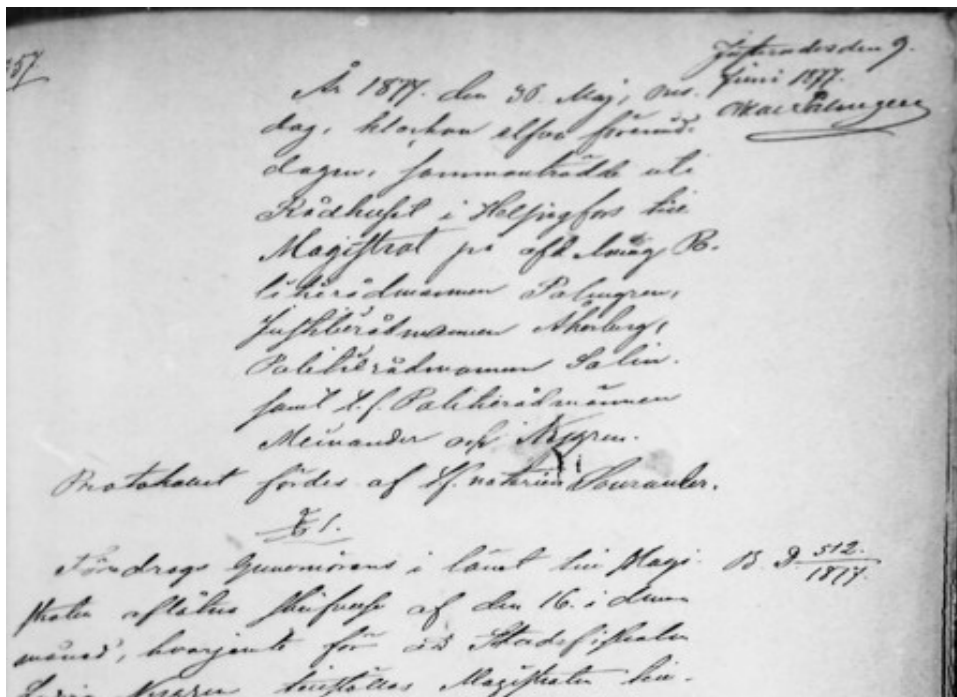 257.
Justerades den 9.
Juni 1877.
Oskar Palmgren
År 1877. den 30. Maj, ons-
dag, klockan elfva förmid-
dagen, sammanträdde uti
Rådhuset i Helsingfors till
Magistrat på afdelning Po-
litierådmannen Palmgren,
Justitierådmannen Åkerberg,
Politierådmannen Salin.
samt t.f. Politierådmännen
Meinander och Nygren.
Protokollet fördes af t.f. notarien
§ 1.
Föredrogs Guvernörens i länet till Magi-
B. D. 512.
1877.
straten aflåtna skrifvelse af den 16. i denna
månad, hvarjemte för Stadsfiskalen
tillställes Magistraten